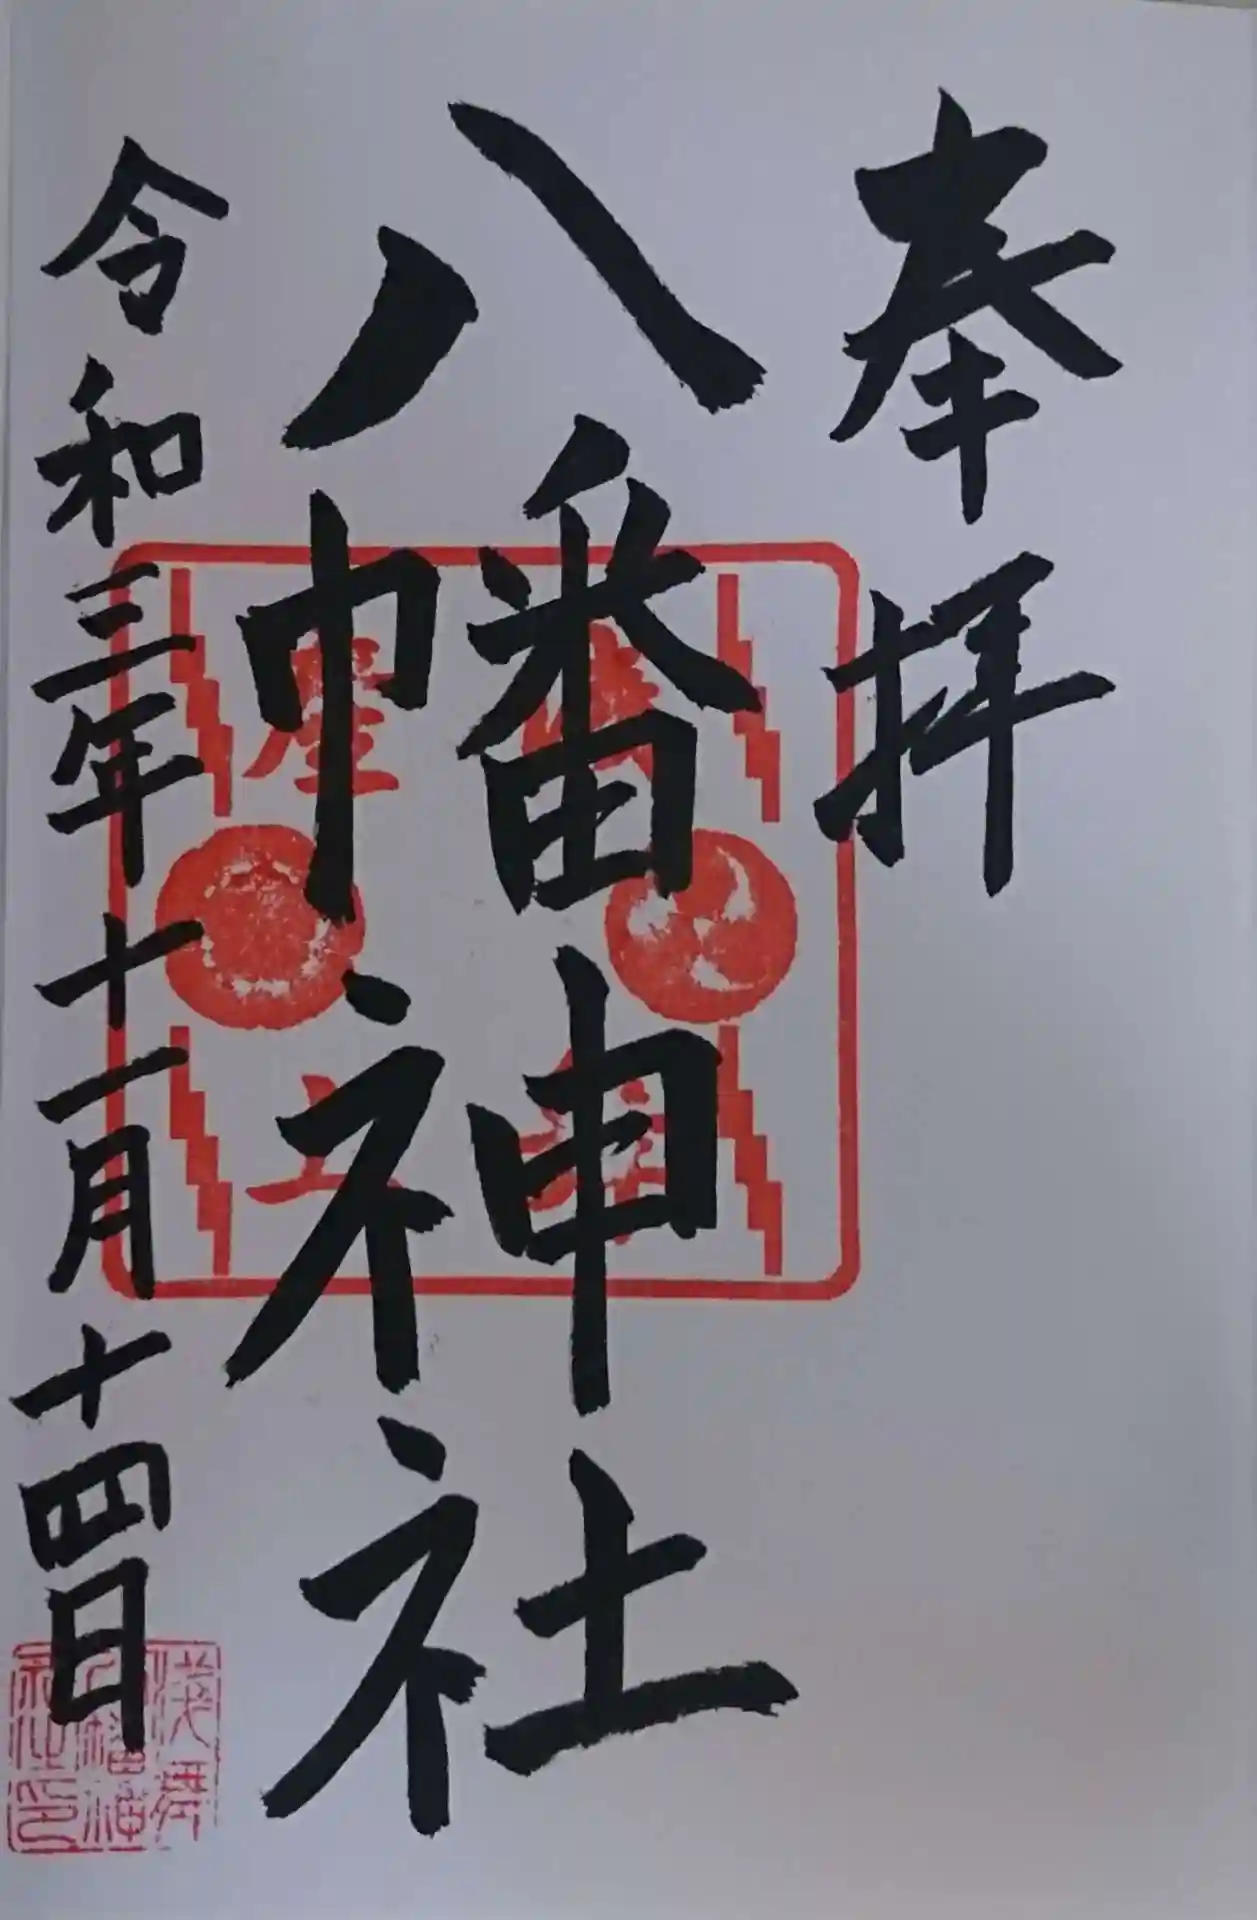 奉拝
八幡神社
令和三年十一月十四日
浅舞
八幡神
社印